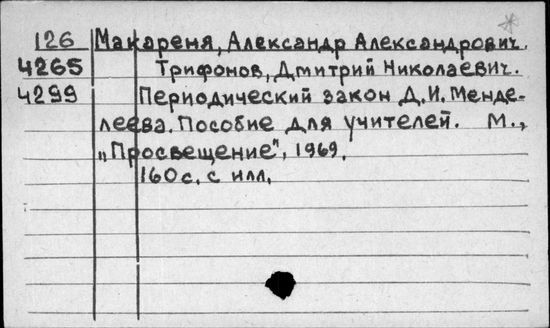 126 Макареня, Александр Александрович.
4265 Трифонов, Дмитрий Николаевич.
4299 Периодический закон Д.И. Менде-
леева. Пособие для учителей. М.,
„Просвещение", 1969.
160с. с илл.